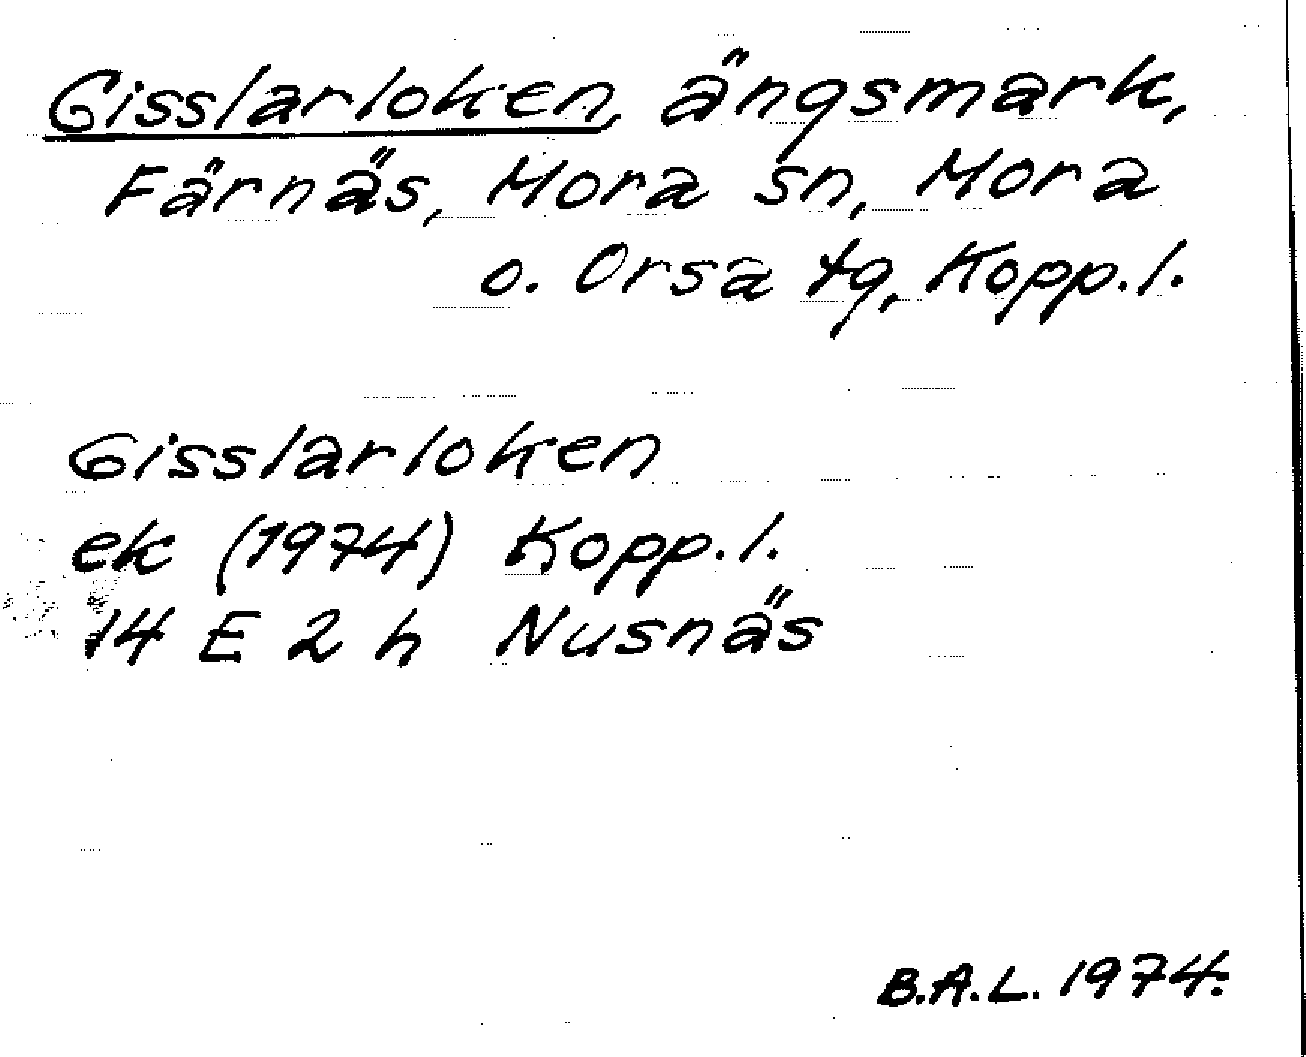 Gisslarloken, ängsmark,
Färnäs, Mora sn, Mora
o. Orsa tg, Kopp.l.
Gisslarloken
ek (1974) Kopp.l.
14 E 2 h Nusnäs
B.A.L. 1974.